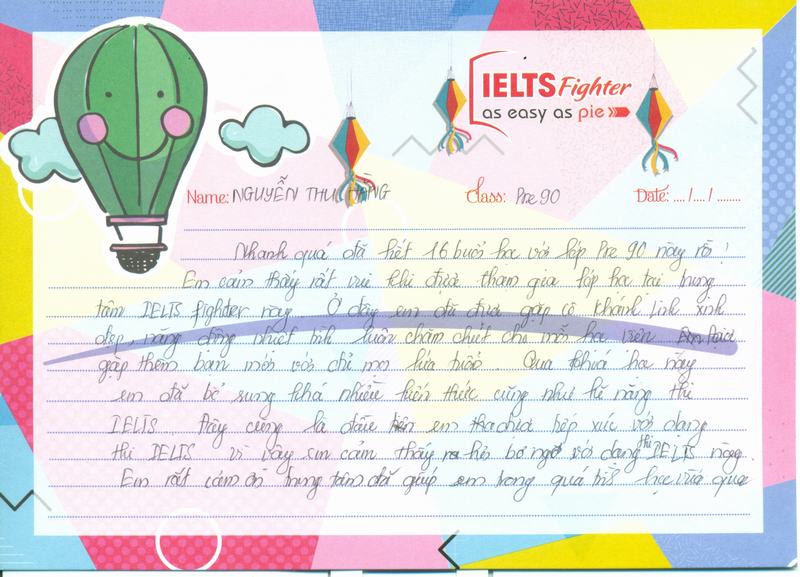 IELTS Fighter
as easy as pie
Name: NGUYỄN THU HẰNG Class: Pre 90 Date: .... /.... / ........
Nhanh quá đã hết 16 buổi học với lớp Pre 90 này rồi!
Em cảm thấy rất vui khi được tham gia lớp học tại trung
tâm IELTS fighter này. Ở đây em đã được gặp cô Khánh Linh xinh
đẹp, năng động nhiệt tình luôn chăm chút cho mỗi học viên
gặp thêm bạn mới với chỉ mọi lứa tuổi. Qua khoá học này
em đã bổ sung khá nhiều kiến thức cũng như kĩ năng thi
IELTS. Đây cũng là đầu em được tiếp xúc với dạng
thi IELTS vì vậy em cảm thấy bỡ ngỡ với dạng thi IELTS này.
Em rất cảm ơn trung tâm đã giúp em trong quá học vừa qua